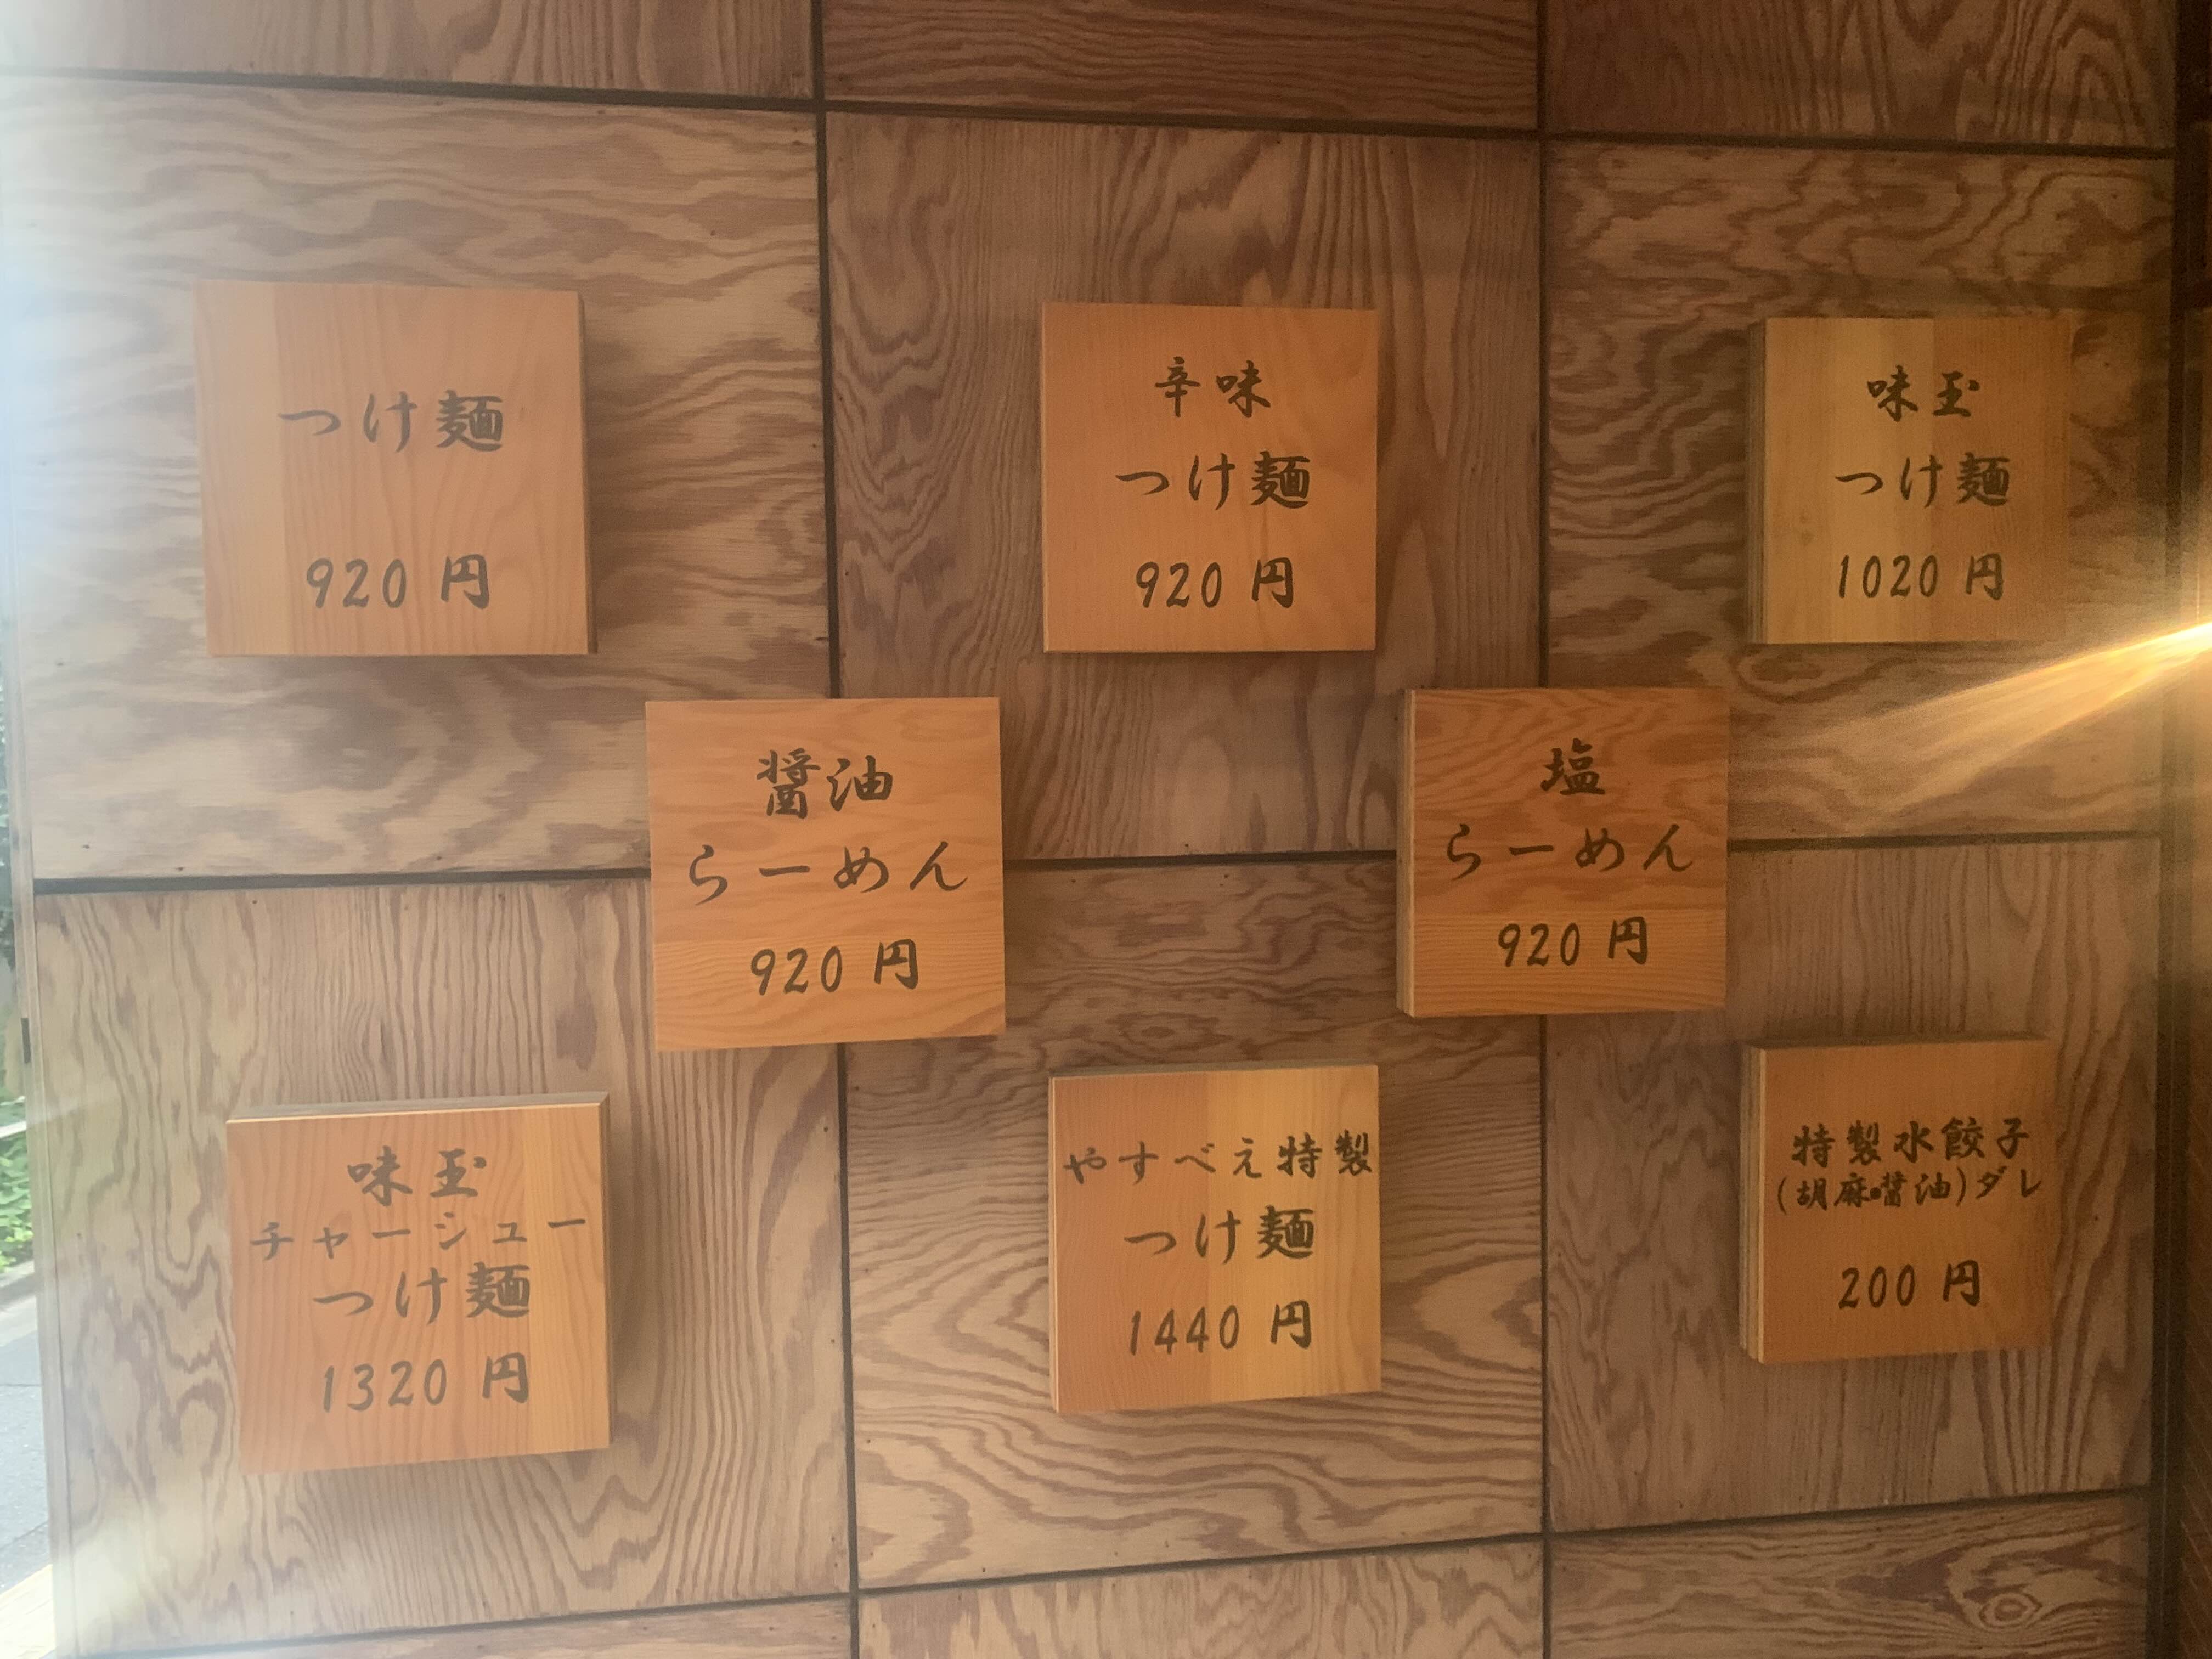 つけ麺
920 円
辛味
つけ麺
920 円
味玉
つけ麺
1020 円
醤油
らーめん
920 円
塩
らーめん
920 円
味玉
チャーシュー
つけ麺
1320 円
やすべえ特製
つけ麺
1440 円
特製水餃子
(胡麻•醤油)ダレ
200 円